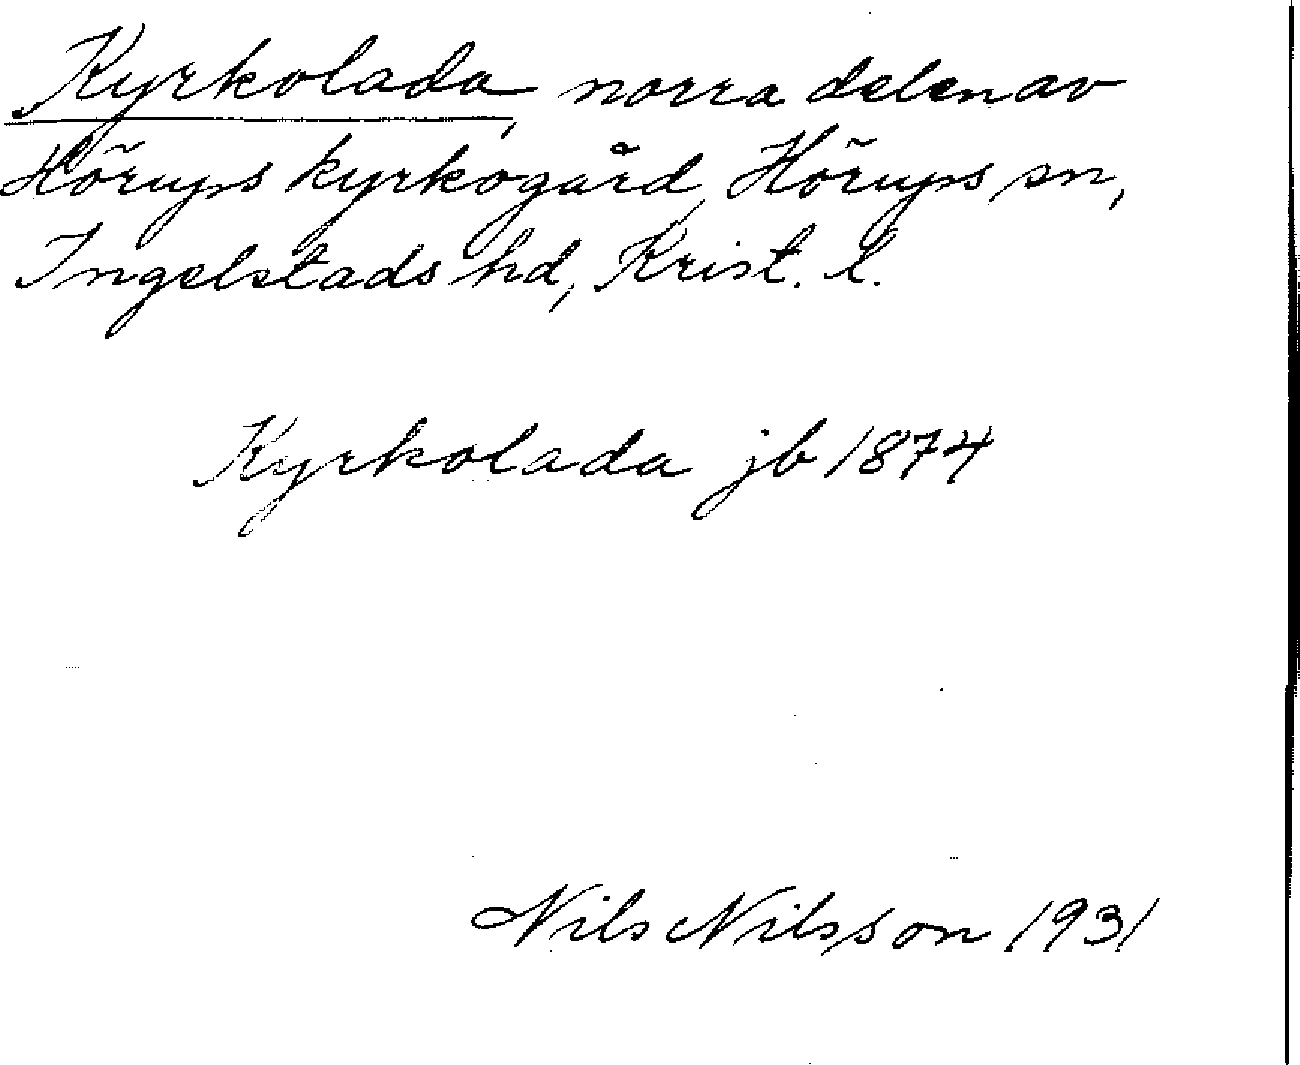 Kyrkolada, norra delen av
Hörups kyrkogård, Hörups sn,
Ingelstads hd, Krist. l.
Kyrkolada jb 1874
Nils Nilsson 1931